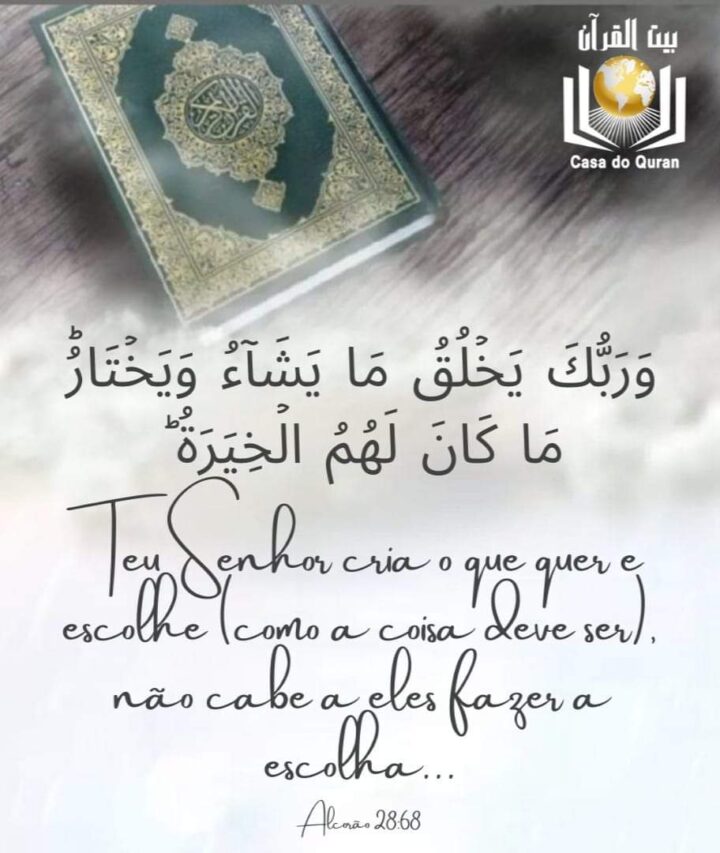 بيت القرآن
Casa do Quran
وَرَبُّكَ يَخۡلُقُ مَا يَشَآءُ وَيَخۡتَارُؕ
مَا كَانَ لَهُمُ الۡخِيَرَةُ ؕ
Teu Senhor cria o que quer e
escolhe (como a coisa deve ser),
não cabe a eles fazer a
escolha...
Alcorão 28:68